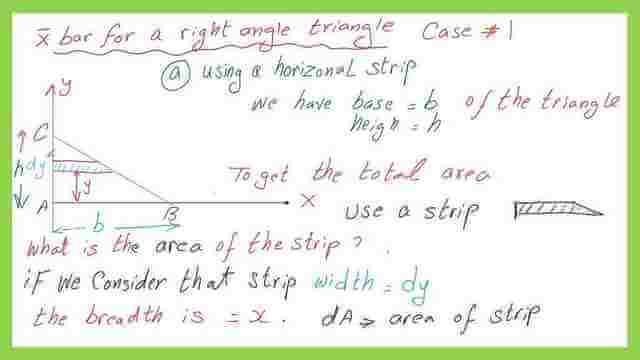 x̄ bar for a right angle triangle Case #1
(a) using a horizonal strip
we have base = b of the triangle
heigh = h
y
C
h dy
y
A
B
x
b
To get the total area
Use a strip
what is the area of the strip?
if we Consider that strip width = dy
the breadth is = x. dA => area of strip